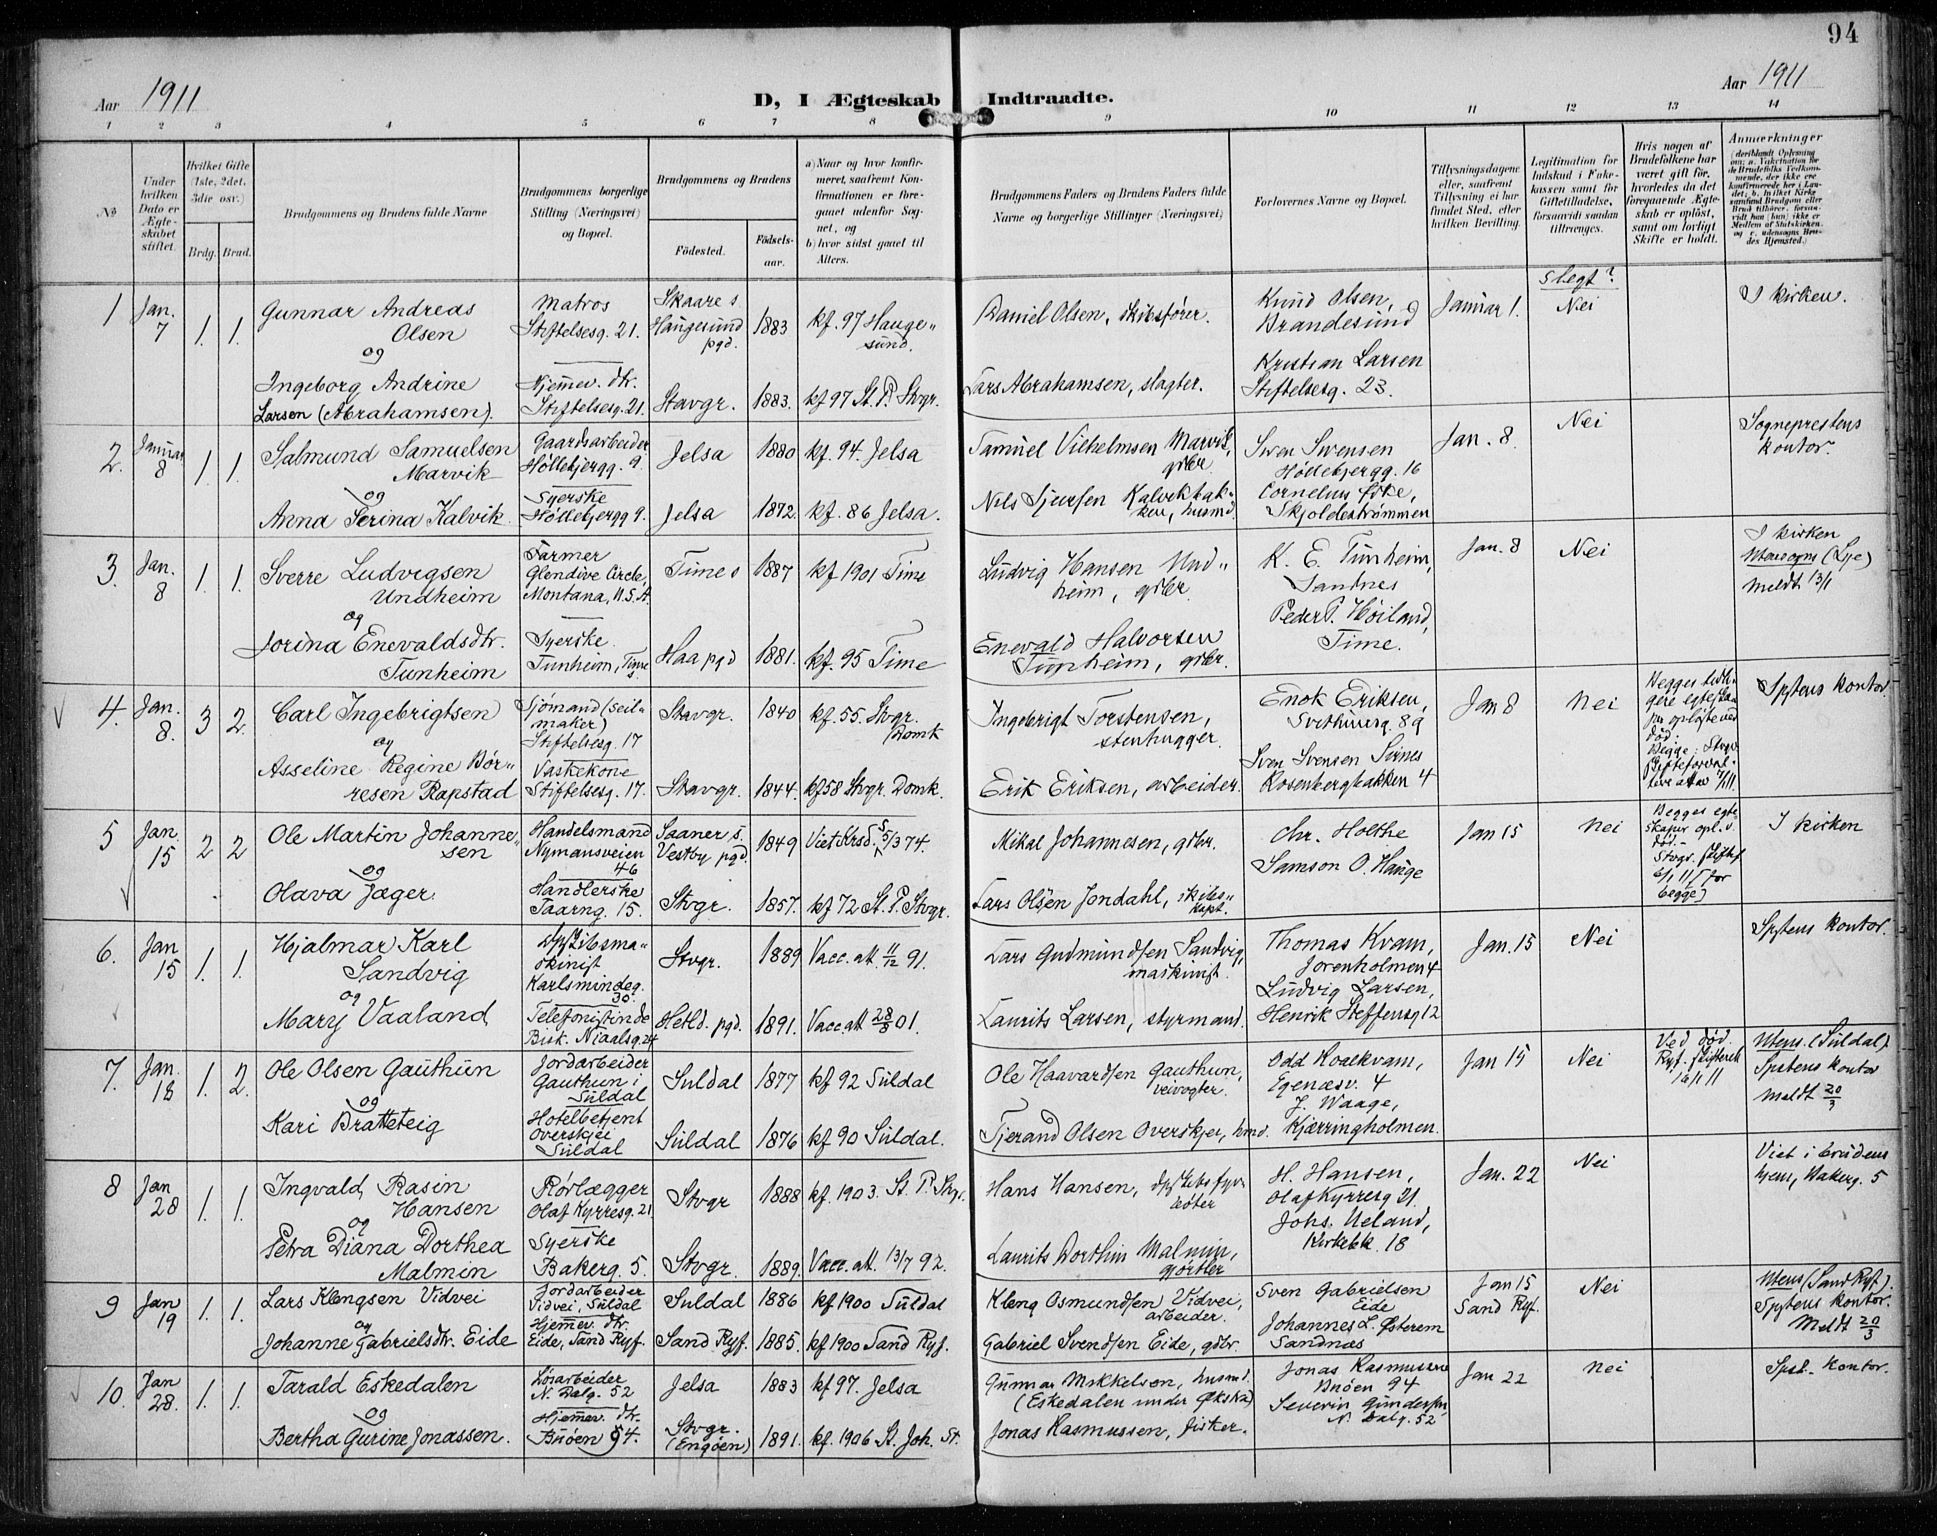 94
Aar 1911
D, I Ægteskab Indtraadte.
Aar 1911
1 2 3 4 5 6 7 8 9 10 11 12 13 14
No
Under hvilken Dato er Ægteskabet stiftet.
Hvilket Gifte (1ste, 2det, 3die osv.)
Brdg. Brud.
Brudgommens og Brudens fulde Navne
Brudgommens borgerlige Stilling (Næringsvei) og Bopæl.
Brudgommens og Brudens
Födested.
Födsels-aar.
a) Naar og hvor konfirmeret, saafremt Konfirmationen er foregaaet udenfor Sognet, og
b) hvor sidst gaaet til Alters.
Brudgommens Faders og Brudens Faders fulde Navne og borgerlige Stillinger (Næringsvei)
Forlovernes Navne og Bopæl.
Tillysningsdagene eller, saafremt Tillysning ei har fundet Sted, efter hvilken Bevilling.
Legitimation for Indskud i Enkekassen samt for Giftetilladelse, forsaavidt saadan tiltrænges.
Hvis nogen af Brudefolkene har været gift før, hvorledes da det foregaaende Ægteskab er oplöst, samt om lovligt Skifte er holdt.
Anmærkninger
Slegt?
1 Jan. 7 1. 1.
Gunnar Andreas
Olsen
og
Ingeborg Andrine
Larsen (Abrahamsen).
Matros
Stiftelsesg. 21.
Hjemmev. dtr.
Stiftelsesg. 21.
Skaare s.
Haugesund
pgd.
Stavgr.
1883
1883.
kf. 97 Hauge-
sund.
kf 97 St. P. Stvgr.
Daniel Olsen, skibsfører.
Lars Abrahamsen, slagter.
Knud Olsen,
Brandesund
Kristian Larsen
Stiftelsesg. 23.
Januar 1.
Nei
I kirken.
2. Januar 8 1. 1.
Salmund Samuelsen
Marvik
og
Anna Serina Kalvik.
Gaardsarbeider
Høllebjergg. 9.
Syerske
Høllebjergg 9.
Jelsa
Jelsa
1880
1872.
kf. 94. Jelsa
kf. 86 Jelsa.
Samuel Vilhelmsen Marvik,
gdbr.
Nils Sjursen Kalvikbak-
ken, husmd.
Sven Svensen
Høllebjergg. 16
Cornelius Eike,
Skjoldestrømmen
Jan. 8.
Nei
Sogneprestens
kontor.
3. Jan. 8 1. 1.
Sverre Ludvigsen
Undheim
og
Jorina Enevaldsdtr.
Tunheim
Farmer
Glendive Circle,
Montana, U.S.A.
Syerske
Tunheim, Time
s.
Time s
Haa pgd
1887
1881.
kf 1901 Time
kf. 95 Time
Ludvig Hansen Und-
heim, gdbr.
Enevald Halvorsen
Tunheim, gdbr.
K. E. Tunheim,
Sandnes
Peder P. Høiland,
Time.
Jan. 8
Nei
I kirken
Utensogns (Lye)
Meldt 13/1
4. Jan. 8. 3 2.
Carl Ingebrigtsen
og
Asseline Regine Bør-
resen Rapstad
Sjømand (seil-
maker)
Stiftelsesg. 17
Vaskekone
Stiftelsesg. 17.
Stavgr.
Stavgr.
1840
1844.
kf. 55. Stvgr.
Domk
kf 58 Stvgr. Domk.
Ingebrigt Torstensen,
stenhugger.
Erik Eriksen, arbeider.
Enok Eriksen,
Svithunsg. 89
Sven Svensen Sirnes
Rosenbergbakken 4
Jan 8
Nei
Begges tidli-
gere egteska-
per opløste ved
død.
Begge: Stvgr.
Spstens kontor
5 Jan. 15 2 2
Ole Martin Johanne-
sen
og
Olava Jæger.
Handelsmand
Nymansveien
46
Handlerske
Taarng. 15.
Saaner s.
Vestby pgd.
Stvgr.
1849
1857.
Viet Krsd. 5/3 74.
kf 72 St. P. Stvgr.
Mikal Johannesen, gdbr.
Lars Olsen Jondahl, skibs-
kapt.
Chr. Holthe
Samson O. Hauge
Jan 15
Nei
Begges egte-
skaper opl. v.
død.
Stvgr. skiftef
6/1 11 (for
begge)
I kirken
6. Jan 15 1. 1.
Hjalmar Karl
Sandvig
og
Mary Vaaland
Dpskibsma-
skinist
Karlsmindeg.
30.
Telefonistinde
Bisk. Njaalsg. 24
Stvgr.
Hetld. pgd.
1889
1891.
Vacc. att. 11/12 91.
Vacc att 28/8 01.
Lars Gudmundsen Sandvig,
maskinist.
Laurits Larsen, styrmand.
Thomas Kvam,
Jorenholmen 4
Ludvig Larsen,
Henrik Steffensg 12
Jan. 15
Nei
Spstens kontor.
7. Jan. 18 1. 2.
Ole Olsen Gauthun
og
Kari Bratteteig
Jordarbeider
Gauthun i
Suldal
Hotelbetjent
Overskjei
Suldal
Suldal
Suldal
1877
1876
kf 92 Suldal
kf 90 Suldal.
Ole Haavardsen Gauthun,
veivogter.
Tjerand Olsen Overskjei, hmd.
Odd Roalkvam,
Egenæsv. 4
J. Waage,
Kjærringholmen.
Jan 15
Nei
Ved død.
Ryf. skifterett
16/1 11
Utens. (Suldal)
Spstens kontor
Meldt 20/3
8 Jan 28 1. 1.
Ingvald Rasin
Hansen
og
Petra Diana Dorthea
Malmin
Rørlægger
Olaf Kyrresg. 21
Syerske
Bakerg. 5.
Stvgr
Stvgr.
1888
1889.
kf. 1903. St. P. Stvgr.
Vacc. att. 13/7 92.
Hans Hansen, dpskibsfyr-
bøter
Laurits Dorthin Malmin,
gjørtler
H. Hansen,
Olaf Kyrresg 21.
Johs. Ueland,
Kirkebk. 18
Jan. 22
Nei
Viet i brudens
hjem, Bakerg. 5
9 Jan 19 1. 1.
Lars Klengsen Vidvei
og
Johanne Gabrielsdtr. Eide
Jordarbeider
Vidvei, Suldal
Hjemmev. dtr.
Eide, Sand Ryf.
Suldal
Sand Ryf.
1886
1885.
kf 1900 Suldal
kf 1900 Sand Ryf.
Kleng Osmundsen Vidvei,
arbeider.
Gabriel Svendsen Eide, gdbr.
Sven Gabrielsen
Eide
Johannes L. Østerem
Sandnæs
Jan 15
Sand Ryf.
Nei
Utens (Sand Ryf).
Spstens kontor.
Meldt 20/3
10. Jan 28. 1. 1.
Tarald Eskedalen
og
Bertha Gurine Jonassen.
Løsarbeider
N. Dalg. 52
Hjemmev. dtr.
Buøen 94.
Jelsa
Stvgr.
(Engøen)
1883
1891.
kf 97. Jelsa
kf. 1906 St. Joh. St.
Gunnar Mikkelsen, husmd.
(Eskedalen under Økska)
Jonas Rasmussen, fisker.
Jonas Rasmussen
Buøen 94
Severin Gundersen
N. Dalg. 52
Jan 22
Nei
Spst. kontor.